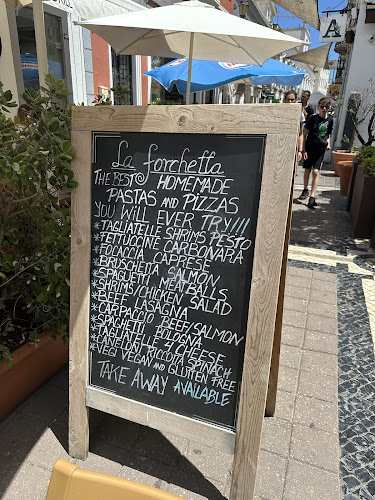 La forchetta
THE BEST HOMEMADE
PASTAS AND PIZZAS
YOU WILL EVER TRY!!!!
*TAGLIATELLE SHRIMS PESTO
*FETTUCCINE CARBONARA
*FOCACCIA CAPRESE
*BRUSCHETTA SALMON
*SPAGHETTI MEATBALLS
*SHRIMS/CHICKEN SALAD
*BEEF LASAGNA
*CARPACCIO BEEF/SALMON
*SPAGHETTI BOLOGNA
*TAGLIATELLE 4 CHEESE
*CANELLONE RICCOTA SPINACH
*VEGI VEGAN AND GLUTEN FREE
TAKE AWAY AVAILABLE
A